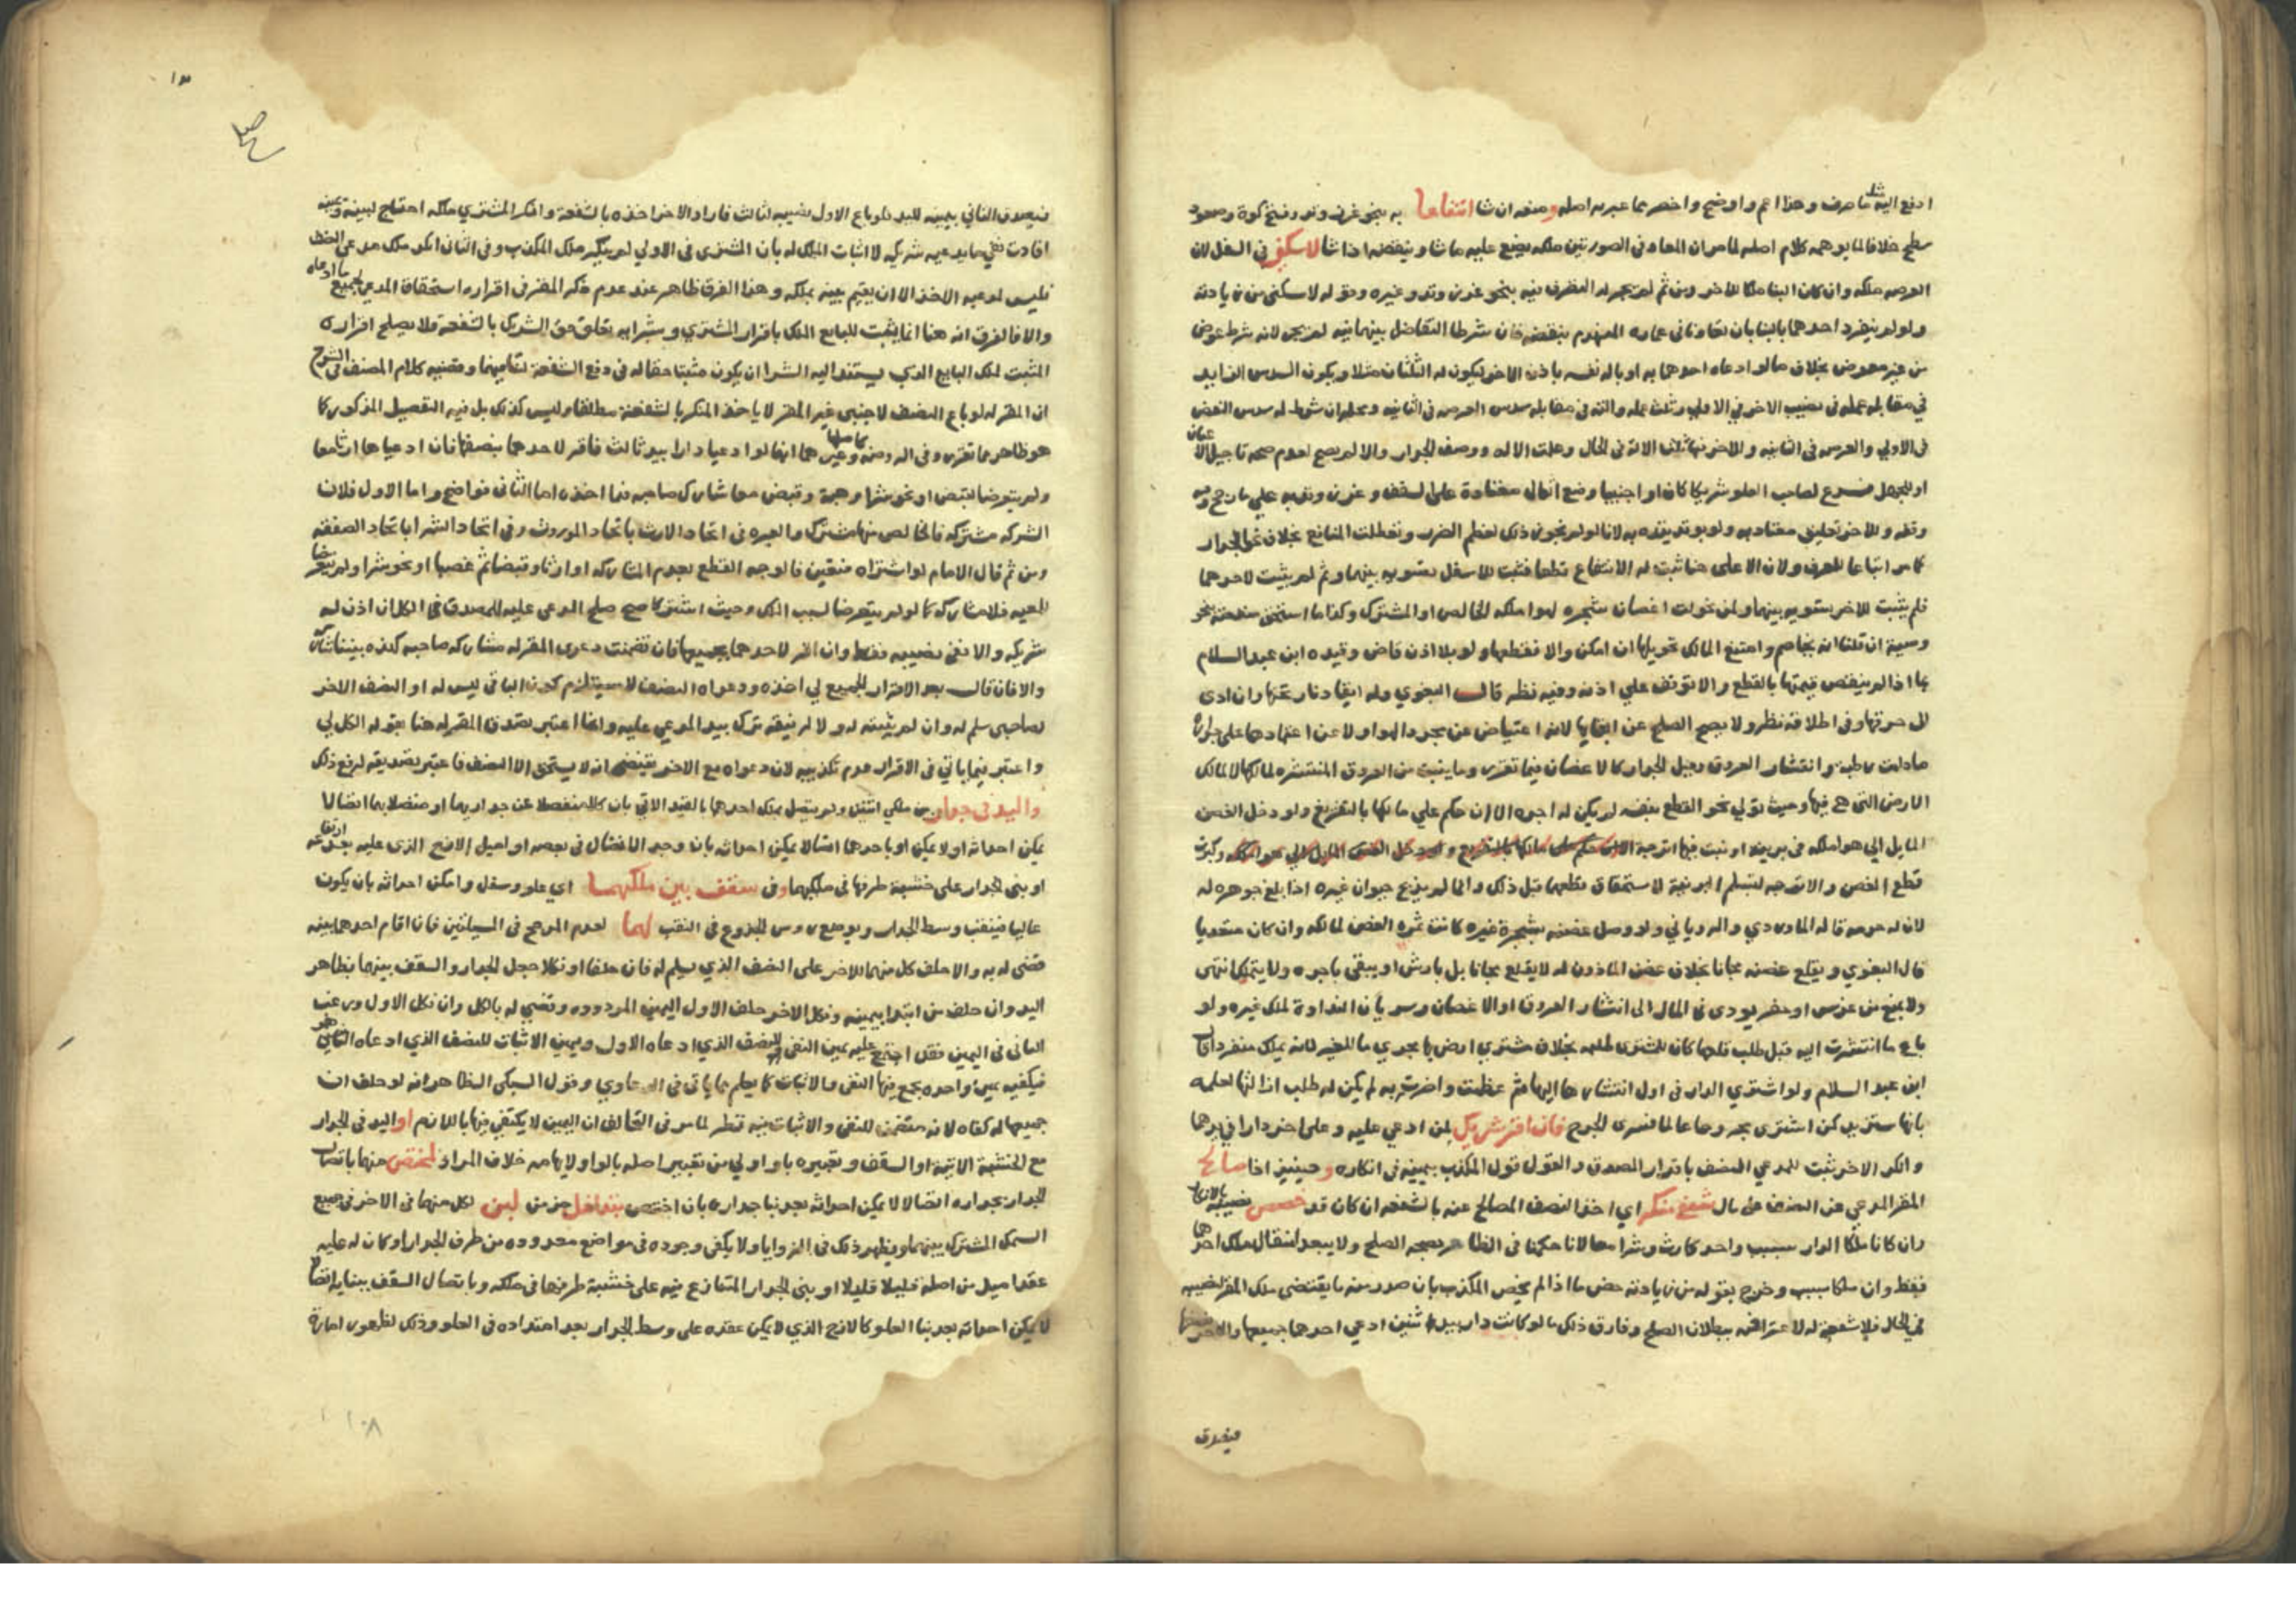 ادفع اليه مثل ما صرف وهذا اعم واوضح واخصر مما عبر به اصله ومنعه ان شا انتفاعا به بنحو غرز وتد وفتح كوة وصعود
سطح خلافا لما يوهمه كلام اصله لما مر ان المعاد في الصورتين ملكه يضع عليه ما شا وينقضه اذا شا لا سكنى في السفل لان
العرصه ملكه وان كان البنا ملكا للاخر ومن ثم لم يجز له التصرف فيه بنحو غرز وتد وغيره وقوله لا سكنى من زيادته
ولو لم ينفرد احدهما بالبنا بان تعاونا في عمارة المنهدم بنقضه فان شرطا التفاضل بينهما فيه لم يجز لانه شرط عوض
من غير معوض بخلاف ما لو اعاده احدهما به او بالة نفسه باذن الاخر ليكون له الثلثان مثلا ويكون السدس الزايد
في مقابلة عمله في نصيب الاخر في الاولى وثلث عمله والته في مقابلة سدس العرصه في الثانيه ومحله ان شرط له سدس النقض
في الاولى والعرصه في الثانيه وللاخر فيها ثلث الالة في الحال وعلمت الاله ووصف الجدار والا لم يصح لعدم صحة تاجيل الاعيان
او للجهل فرع لصاحب العلو شريكا كان او اجنبيا وضع اثقال معتادة على السقف وغرز وتد به على ما رجح
وقفه وللاخر تعليق معتاد به ولو بوتد يتده به لانا لو لم نجوز ذلك لعظم الضرر وتعطلت المنافع بخلاف نحو الجدار
كما مر اتباعا للعرف ولان الاعلى هنا ثبت له الانتفاع قطعا فثبت للاسفل تسوية بينهما وثم لم يثبت لاحدهما
فلم يثبت للاخر تسوية بينهما ولمن تحولت اغصان شجرة لهوا ملكه الخالص او المشترك وكذا ما استحق منفعته بنحو
وصية ان قلنا انه يخاصم وامتنع المالك تحويلها ان امكن والا فقطعها ولو بلا اذن قاض وقيده ابن عبد السلام
بما اذا لم ينقص قيمتها بالقطع والا توقف على اذنه وفيه نظر قال البغوي وله ايقاد نار تحتها وان ادى
الى حرقها وفي اطلاقه نظر ولا يصح الصلح عن ابقايها لانه اعتياض عن مجرد الهوا ولا عن اعتمادها على جداره
ما دامت رطبة وانتشار العروق وميل الجدار كالاغصان فيما تقرر وما ينبت من العروق المنتشره لمالكها لا لمالك
الارض التي هي فيها وحيث تولى نحو القطع بنفسه لم يكن له اجره الا ان حكم على مالكها بالتفريغ ولو دخل الغصن
المايل الى هوا ملكه في برنية او نبت فيها اترجة وكبرت
قطع الغصن والاترجه لتسلم البرنية لاستحقاق قطعهما قبل ذلك وانما لم يذبح حيوان غيره اذا بلع جوهره له
لان له حرمه قاله الماوردي والروياني ولو وصل غصنه بشجرة غيره كانت ثمرة الغصن لمالكه وان كان متعديا
قال البغوي ويقلع غصنه مجانا بخلاف غصن الماذون له لا يقلع مجانا بل بارش او يبقى باجره ولا يتملك انتهى
ولا يمنع من غرس او حفر يودي في المال الى انتشار العروق او الاغصان وسريان النداوة لملك غيره ولو
باع ما انتشرت اليه قبل طلب قلعها كان للمشتري طلبه بخلاف مشتري ارض بها يجري ما للغير لانه يملك منفردا قال
ابن عبد السلام ولو اشترى الدار في اول انتشارها اليها ثم عظمت واضرت به لم يكن له طلب ازالتها لعلمه
بانها ستزيد كمن اشترى مجروحا عالما فسرى الجرح فان اقر شريك لمن ادعى عليه وعلى اخر دارا في يدهما
وانكر الاخر ثبت للمدعي النصف باقرار المصدق والقول قول المكذب بيمينه في انكاره وحينيذ اذا صالح
المقر المدعي عن النصف على مال شفع منكر اي اخذ النصف المصالح عنه بالشفعه ان كان قد خصص نصيبه بالانكار
وان كانا ملكا الدار بسبب واحد كارث وشرا معا لانا حكمنا في الظاهر بصحه الصلح ولا يبعد انتقال ملك احدهما
فقط وان ملكا بسبب وخرج بقوله من زيادته خص ما اذا لم يخص المكذب بان صدر منه ما يقتضي ملك المقر نصيبه
في الحال فلا شفعه له لاعترافه ببطلان الصلح وفارق ذلك ما لو كانت دار بيد اثنين ادعى احدهما جميعها والاخر نصفها
فيصدق
١٠٣
فيصدق الثاني بيمينه لليد ولو باع الاول نصيبه لثالث فاراد الاخر اخذه بالشفعة وانكر المشتري ملكه احتاج لبينة ويمينه
افادت دفع ما يدعيه شريكه لا اثبات الملك له بان المشتري في الاولى لم ينكر ملك المكذب وفي الثاني انكر ملك مدعي النصف
فليس لمدعيه الاخذ الا ان يقيم بينه بملكه وهذا الفرق ظاهر عند عدم ذكر المقر في اقراره استحقاق المدعي لجميع ما ادعاه
والا فالفرق انه هنا انما يثبت للبايع الملك باقرار المشتري وبشرايه تعلق حق الشريك بالشفعة فلا يصلح اقراره
المثبت لملك البايع الذي يستند اليه الشرا ان يكون مثبتا حقا له في دفع الشفعة لتنافيهما وقضيه كلام المصنف في الشرح
ان المقر له لو باع النصف لاجنبي غير المقر لا ياخذ المنكر بالشفعة مطلقا وليس كذلك بل فيه التفصيل المذكور كما
هو ظاهر مما تقرر وفي الروضه وغيرها كاصلها انهما لو ادعيا دارا بيد ثالث فاقر لاحدهما بنصفها فان ادعياها ارثا معا
ولم يتعرضا لقبض او نحو شرا وهبة وقبض معا شارك صاحبه فيما اخذه اما الثاني فواضح واما الاول فلان
الشركه مشتركه فالخالص منها مشترك والعبره في اتحاد الارث باتحاد الموروث وفي اتحاد الشرا باتحاد الصفقه
ومن ثم قال الامام لو اشتراه متفقين فالوجه القطع بعدم المشاركه او ارثا وقبضا ثم غصبها او نحو شرا ولم يتعرضا
للمعيه فلا مشاركه كما لو لم يتعرضا لسبب الملك وحيث اشتركا صح صلح المدعى عليه للمصدق في الكل ان اذن له
شريكه والا ففي نصيبه فقط وان اقر لاحدهما بجميعها فان تضمنت دعوى المقر له مشاركه صاحبه كهذه بيننا شاركه
والا فان قال بعد الاقرار الجميع لي اخذه ودعواه النصف لا يستلزم كون الباقي ليس له او النصف الاخر
لصاحبي سلم له وان لم يثبته له ولا لم ينفه ترك بيد المدعى عليه وانما اعتبر تصدق المقر له هنا بقوله الكل لي
واعتبر فيما ياتي في الاقرار عدم تكذيبه لان دعواه مع الاخر يقتضي انه لا يستحق الا النصف فاعتبر تصديقه لرفع ذلك
واليد في جدار بين ملكي اثنين ولم يتصل بملك احدهما بالقيد الاتي بان كان منفصلا عن جداريهما او متصلا بهما اتصالا
يمكن احداثه او لا يمكن او باحدهما اتصالا يمكن احداثه بان وجد الاتصال في بعضه او اميل الازج الذي عليه بعد ارتفاعه
او بني الجدار على خشبة طرفها في ملكيهما وفي سقف بين ملكيهما اي علو وسفل وامكن احداثه بان يكون
عاليا فينقب وسط الجدار ويوضع روس الجذوع في النقب لهما لعدم المرجح في المسيلتين فان اقام احدهما بينه
قضي له به والا حلف كل منهما للاخر على النصف الذي يسلم له فان حلفا او نكلا جعل الجدار والسقف بينهما بظاهر
اليد وان حلف من ابتدا بيمينه ونكل الاخر حلف الاول اليمين المردوده وقضي له بالكل وان نكل الاول ورغب
الثاني في اليمين فقد اجتمع عليه يمين النفي للنصف الذي ادعاه الاول ويمين الاثبات للنصف الذي ادعاه
فيكفيه يمين واحده يجمع فيها النفي والاثبات كما يعلم مما ياتي في الدعاوي وقول السبكي الظاهر انه لو حلف ان
جميعها له كفاه لانه متضمن للنفي والاثبات فيه نظر لما مر في التحالف ان اليمين لا يكتفي فيها باللازم او اليد في الجدار
مع الخشبة الاتية او السقف وتعبيره باو اولى من تعبير اصله بالواو لايهامه خلاف المراد لمختص منهما باتصال
الجدار بجداره اتصالا لا يمكن احداثه بعد بنا جداره بان اختص بتداخل جز من لبن لكل منهما في الاخر في جميع
السمك المشترك بينهما ويظهر ذلك في الزوايا ولا يكفي وجوده في مواضع معدوده من طرف الجدار او كان له عليه
عقد اميل من اصله قليلا قليلا او بني الجدار المتنازع فيه على خشبة طرفها في ملكه وباتصال السقف ببنايه اتصالا
لا يمكن احداثه بعد بنا العلو كالازج الذي لا يمكن عقده على وسط الجدار بعد امتداده في العلو وذلك لظهور امارة
١٠٨